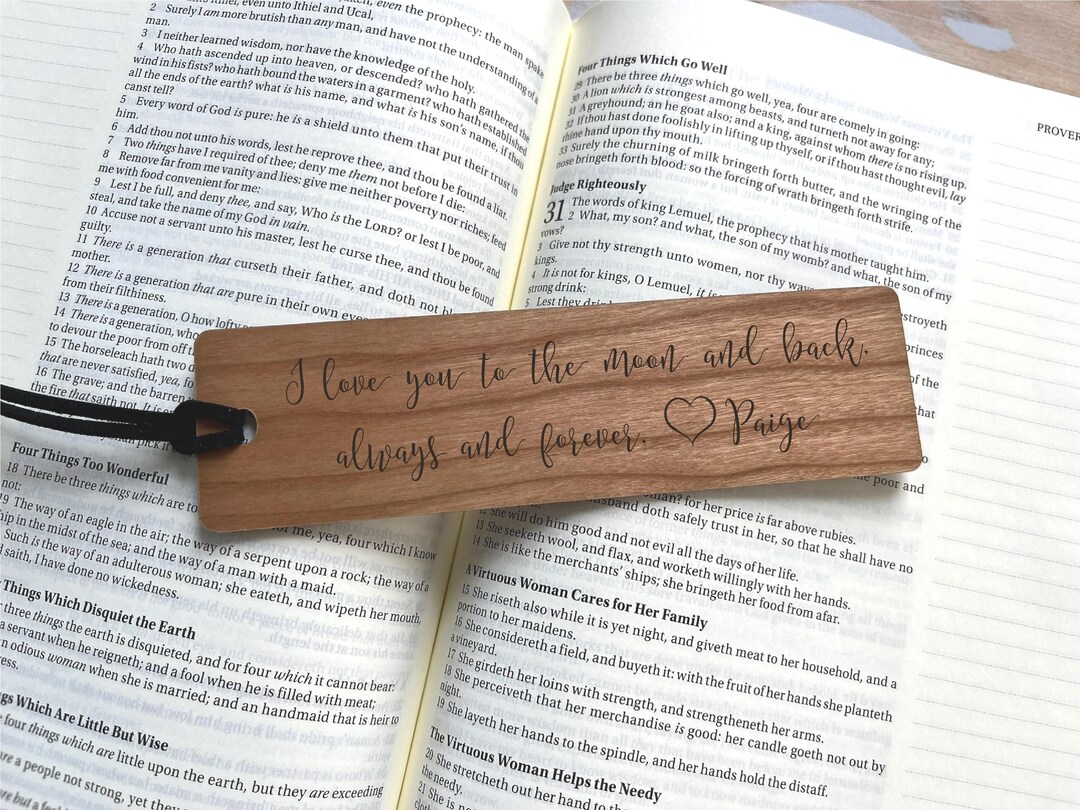 thiel, even unto Ithiel and Ucal,
2 Surely I am more brutish than any man, and have not the understanding of a
man.
3 I neither learned wisdom, nor have the knowledge of the holy.
4 Who hath ascended up into heaven, or descended? who hath gathered the
wind in his fists? who hath bound the waters in a garment? who hath established
all the ends of the earth? what is his name, and what is his son's name, if thou
canst tell?
5 Every word of God is pure: he is a shield unto them that put their trust in
him.
6 Add thou not unto his words, lest he reprove thee, and thou be found a liar.
7 Two things have I required of thee; deny me them not before I die:
8 Remove far from me vanity and lies: give me neither poverty nor riches; feed
me with food convenient for me:
9 Lest I be full, and deny thee, and say, Who is the LORD? or lest I be poor, and
steal, and take the name of my God in vain.
10 Accuse not a servant unto his master, lest he curse thee, and thou be found
guilty.
11 There is a generation that curseth their father, and doth not bl
mother.
12 There is a generation that are pure in their own eyes
from their filthiness.
13 There is a generation, O how lofty
14 There is a generation, who
to devour the poor from off t
15 The horseleach hath two d
that are never satisfied, yea, fo
16 The grave; and the barren
the fire that saith not, It is
Four Things Too Wonderful
18 There be three things which are to
for me, yea, four which I know
not:
19 The way of an eagle in the air; the way of a serpent upon a rock; the way of a
hip in the midst of the sea; and the way of a man with a maid.
Such is the way of an adulterous woman; she eateth, and wipeth her mouth,
saith, I have done no wickedness.
Things Which Disquiet the Earth
three things the earth is disquieted, and for four which it cannot bear:
a servant when he reigneth; and a fool when he is filled with meat;
n odious woman when she is married; and an handmaid that is heir to
ress.
gs Which Are Little But Wise
four things which are little upon the earth, but they are exceeding
are a people not strong, yet they
PROVER
Four Things Which Go Well
29 There be three things which go well, yea, four are comely in going:
30 A lion which is strongest among beasts, and turneth not away for any;
31 A greyhound; an he goat also; and a king, against whom there is no rising up.
32 If thou hast done foolishly in lifting up thyself, or if thou hast thought evil, lay
thine hand upon thy mouth.
33 Surely the churning of milk bringeth forth butter, and the wringing of the
nose bringeth forth blood: so the forcing of wrath bringeth forth strife.
Judge Righteously
31 The words of king Lemuel, the prophecy that his mother taught him.
2 What, my son? and what, the son of my womb? and what, the son of my
vows?
3 Give not thy strength unto women, nor thy ways
kings.
4 It is not for kings, O Lemuel, it is
strong drink:
5 Lest they drin
I love you to the moon and back.
always and forever. ♡ Paige
man? for her price is far above rubies.
usband doth safely trust in her, so that he shall have no
12 She will do him good and not evil all the days of her life.
13 She seeketh wool, and flax, and worketh willingly with her hands.
14 She is like the merchants' ships; she bringeth her food from afar.
A Virtuous Woman Cares for Her Family
15 She riseth also while it is yet night, and giveth meat to her household, and a
portion to her maidens.
16 She considereth a field, and buyeth it: with the fruit of her hands she planteth
a vineyard.
17 She girdeth her loins with strength, and strengtheneth her arms.
18 She perceiveth that her merchandise is good: her candle goeth not out by
night.
19 She layeth her hands to the spindle, and her hands hold the distaff.
The Virtuous Woman Helps the Needy
20 She stretcheth out her hand to the
the needy.
21 She is no